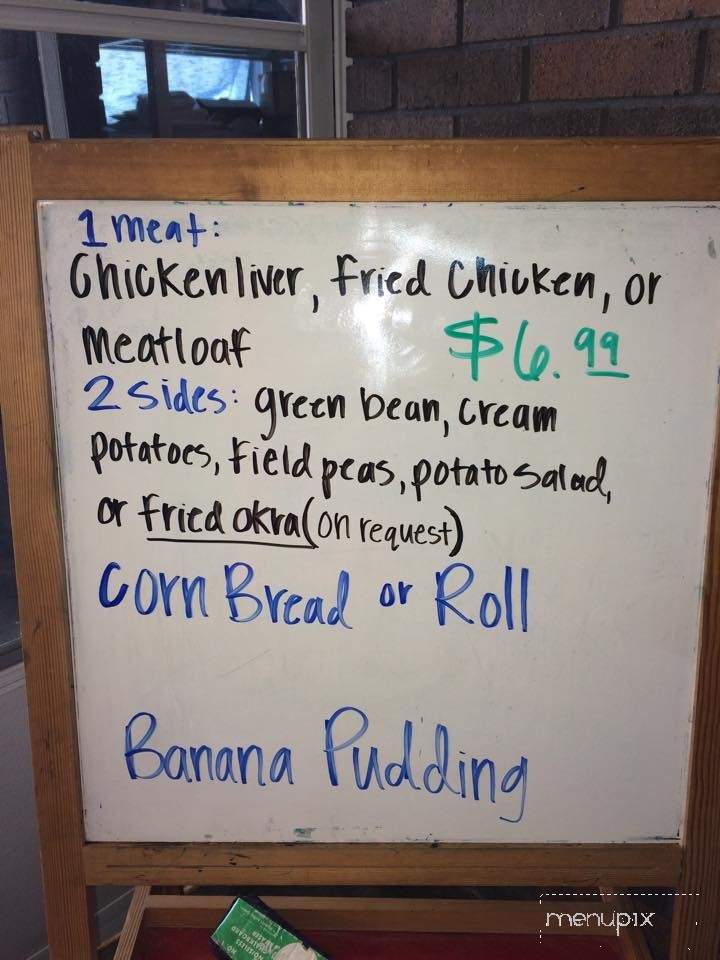 1 meat:
Chicken liver, fried chicken, or
meatloaf $6.99
2 sides: green bean, cream
potatoes, field peas, potato salad,
or fried okra (on request)
Corn Bread or Roll
Banana Pudding
menupix